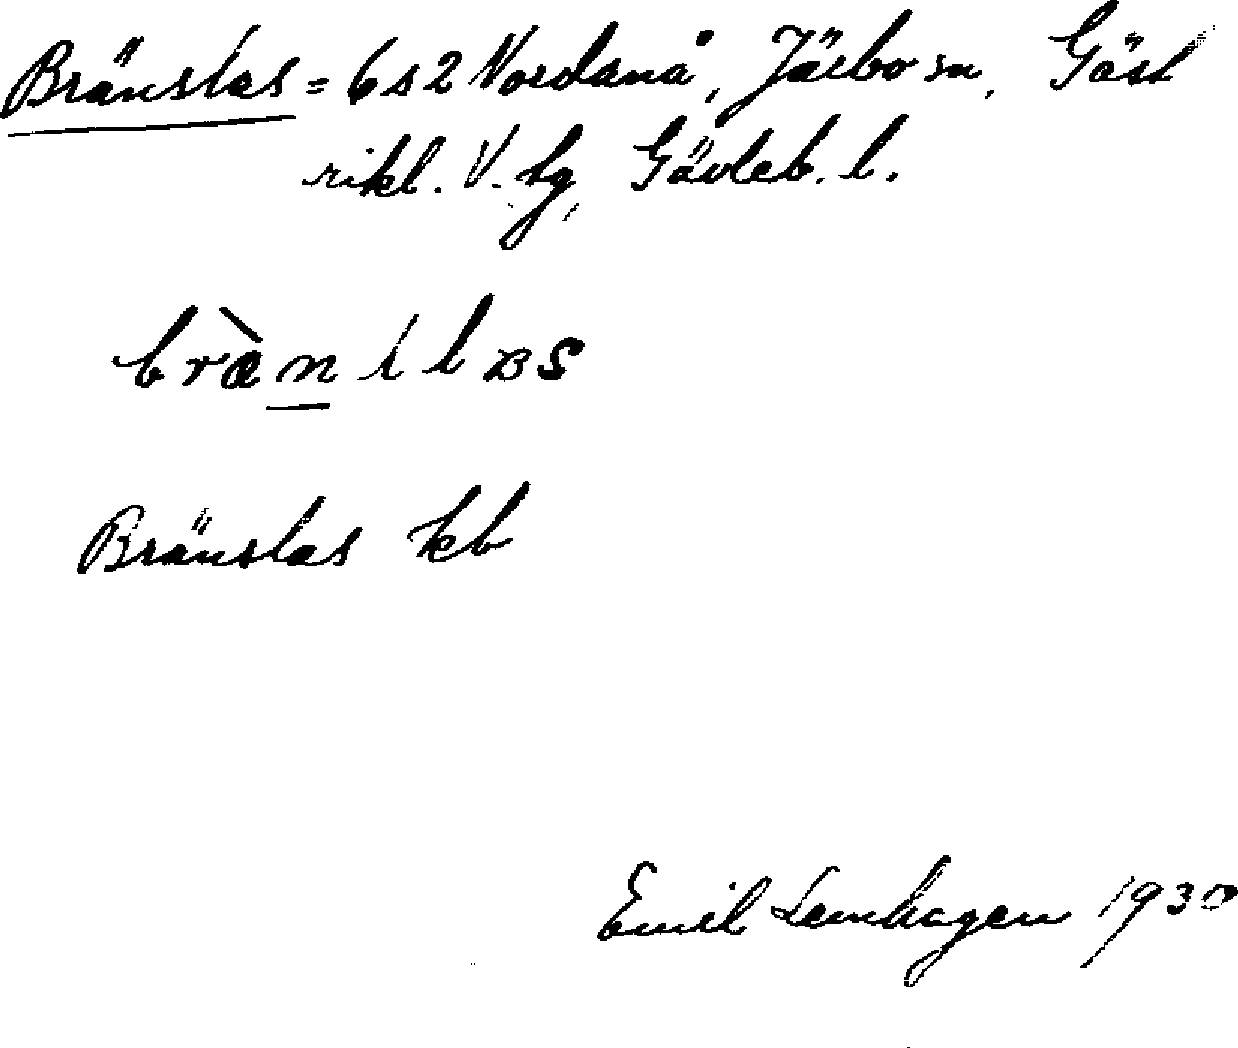 Bränslas = 6s2 Nordanå, Järbo sn, Gäst
rikl. V. tg, Gävleb. l.
Bränslas kb
Emil Lemhagen 1930